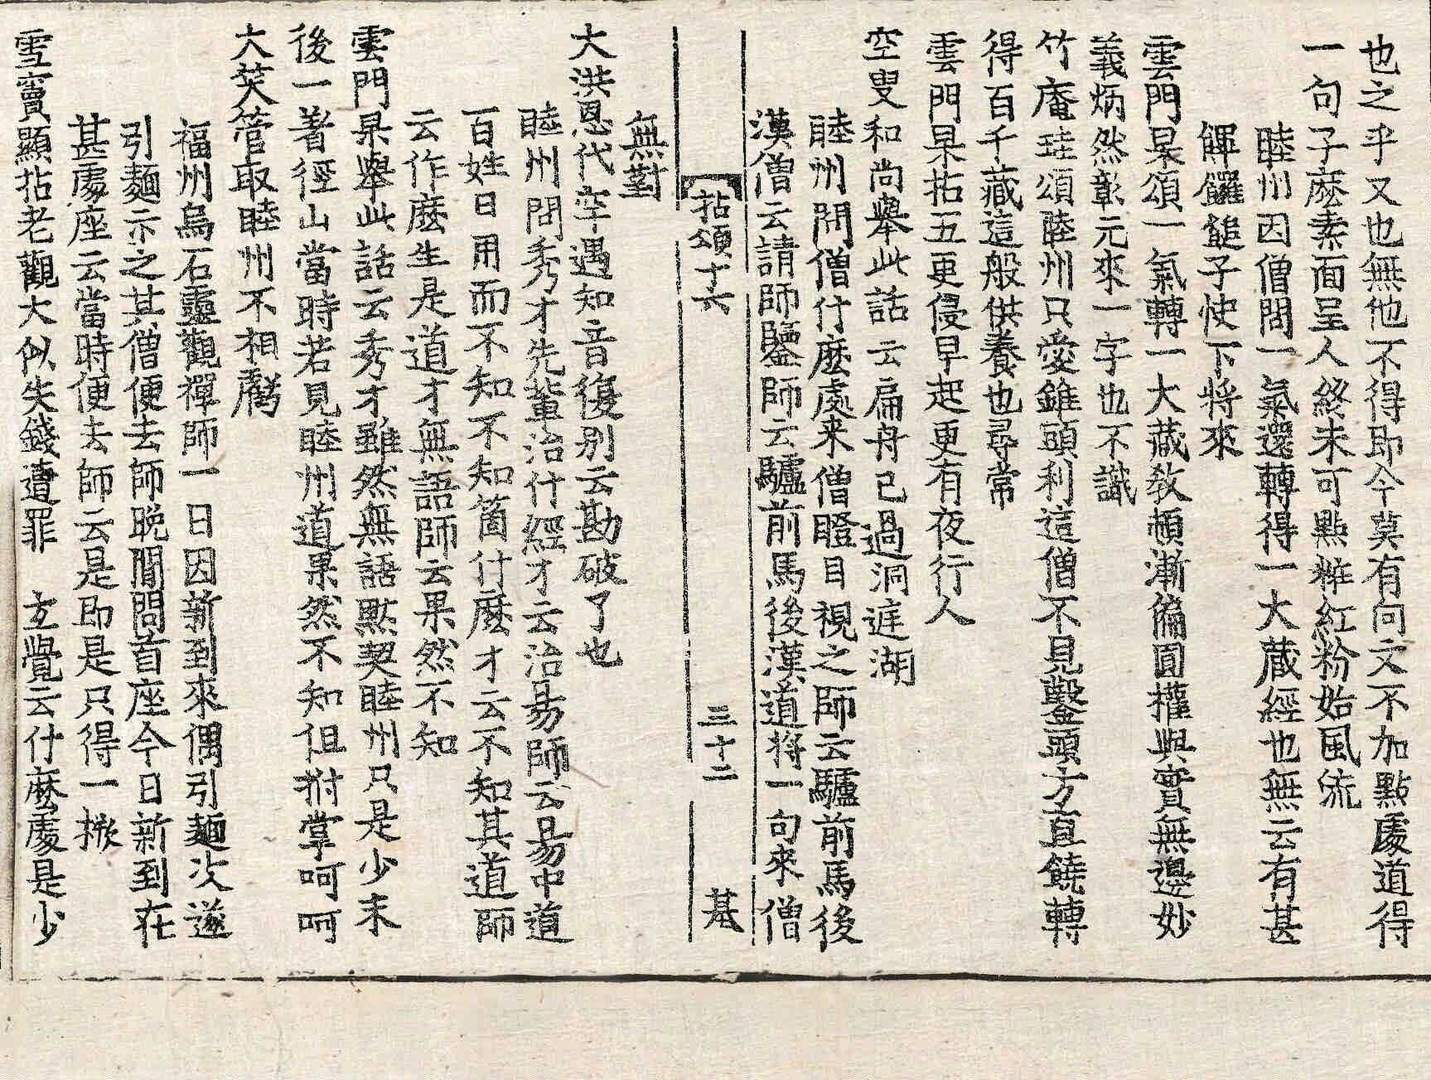 也之乎又也無他不得即今莫有向文不加點處道得
一句子麽素面呈人終未可點粧紅粉始風流
睦州因僧問一氣還轉得一大藏經也無云有甚
饆饠䭔子快下將來
雲門杲頌一氣轉一大藏敎頓漸偏圓權與實無邊妙
義炳然彰元來一字也不識
竹庵珪頌睦州只愛錐頭利這僧不見鑿頭方直饒轉
得百千藏這般供養也尋常
雲門杲拈五更侵早起更有夜行人
空叟和尚擧此話云扁舟已過洞庭湖
睦州問僧什麽處来僧瞪目視之師云驢前馬後
漢僧云請師鑒師云驢前馬後漢道將一句來僧
拈頌十六 三十二 甚
無對
大洪恩代空遇知音復别云勘破了也
睦州問秀才先輩治什經才云治易師云易中道
百姓日用而不知不知箇什麽才云不知其道師
云作麽生是道才無語師云果然不知
雲門杲擧此話云秀才雖然無語黙契睦州只是少末
後一著徑山當時若見睦州道果然不知但拊掌呵呵
大笑管取睦州不相
福州烏石靈觀禪師一日因新到來偶引麵次遂
引麵示之其僧便去師晩間問首座今日新到在
甚處座云當時便去師云是即是只得一橛
雪竇顯拈老觀大似失錢遭罪 玄覺云什麽處是少